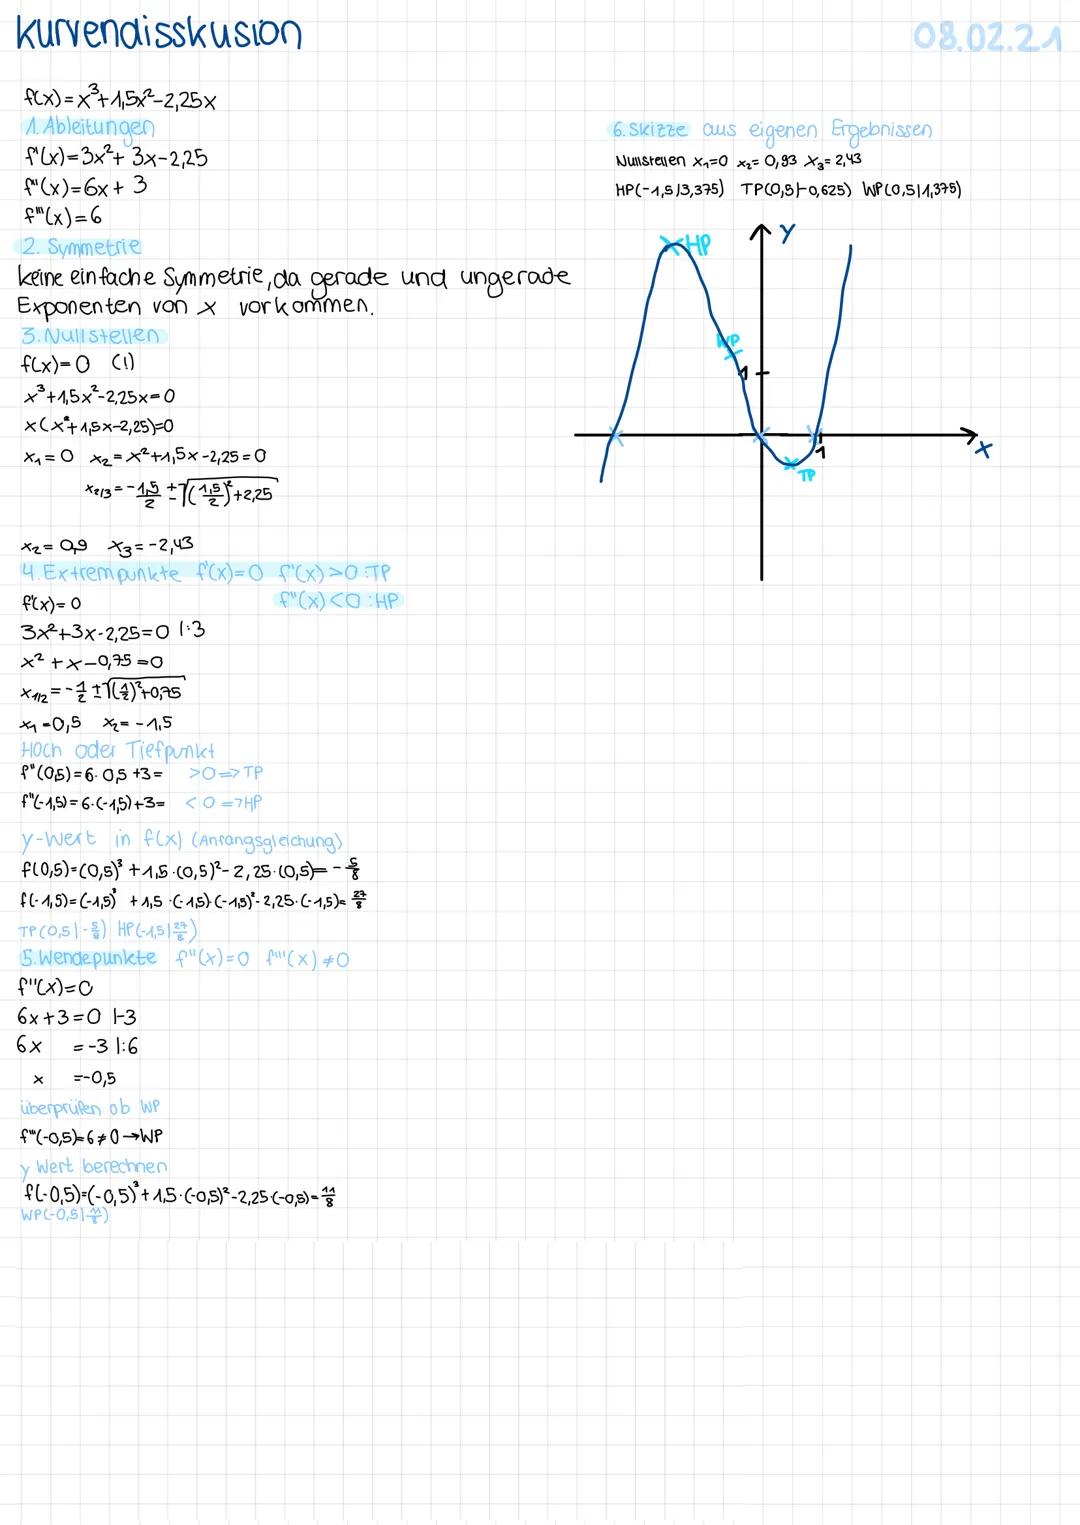 kurvendisskusion
08.02.21
f(x)=x³+1,5x²-2,25x
1. Ableitungen
f'(x)=3x²+3x-2,25
f"(x)=6x+3
f'''(x)=6
2. Symmetrie
keine einfache Symmetrie, da gerade und ungerade
Exponenten von x vorkommen.
3. Nullstellen
f(x)=0 (!)
x³+1,5x²-2,25x=0
x(x²+1,5x-2,25)=0
x₁=0 x₂=x²+1,5x-2,25=0
x₂/₃=-1,5/2 ±√(1,5/2)²+2,25
x₂=0,9 x₃=-2,43
4. Extrempunkte f'(x)=0 f"(x)>0:TP
f"(x)<0:HP
f'(x)=0
3x²+3x-2,25=0 |:3
x²+x-0,75=0
x₁/₂=-1/2 ±√(1/2)²+0,75
x₁=0,5 x₂=-1,5
Hoch oder Tiefpunkt
f"(0,5)=6·0,5+3= >0=>TP
f"(-1,5)=6·(-1,5)+3= <0=>HP
y-Wert in f(x) (Anfangsgleichung)
f(0,5)=(0,5)³+1,5·(0,5)²-2,25·(0,5)=-5/8
f(-1,5)=(-1,5)³+1,5·(-1,5)·(-1,5)²-2,25·(-1,5)=27/8
TP(0,5|-5/8) HP(-1,5|27/8)
5. Wendepunkte f"(x)=0 f'''(x)≠0
f"(x)=0
6x+3=0 |-3
6x =-3 |:6
x =-0,5
überprüfen ob WP
f'''(-0,5)=6≠0→WP
y Wert berechnen
f(-0,5)=(-0,5)³+1,5·(-0,5)²-2,25·(-0,5)=11/8
WP(-0,5|11/8)
6. Skizze aus eigenen Ergebnissen
Nullstellen x₁=0 x₂=0,93 x₃=2,43
HP(-1,5|3,375) TP(0,5|-0,625) WP(0,5|1,375)
y
HP
WP
1
1
x
TP